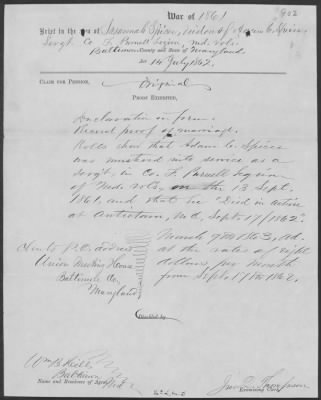 War of 1861
902
Brief in the case of Susannah Spicer, widow of Adam C. Spicer,
Sergt. Co. F. Purnell Legion, Md. Vols.
Baltimore County and State of Maryland.
Act 14 July 1862.
Claim for Pension. Original
Proof Exhibited.
Declaration in form.
Record proof of marriage.
Rolls show that Adam C. Spicer
was mustered into service as a
Sergt. in Co. F. Purnell Legion
of Md. Vols, on the 13 Sept.
1861, and that he "Died in action
at Antietam, Md, Septr. 17/1862."
March 9th 1863, Ad.
at the rate of eight
dollars per month
from Sept. 17th 1862.
P.O. address
Union Meeting House
Baltimore Co,
Maryland
Checked by
Wm B. Hill
Baltimore
Md
Name and Residence of Agent.
Jno. D. Thompson
Examining Clerk.